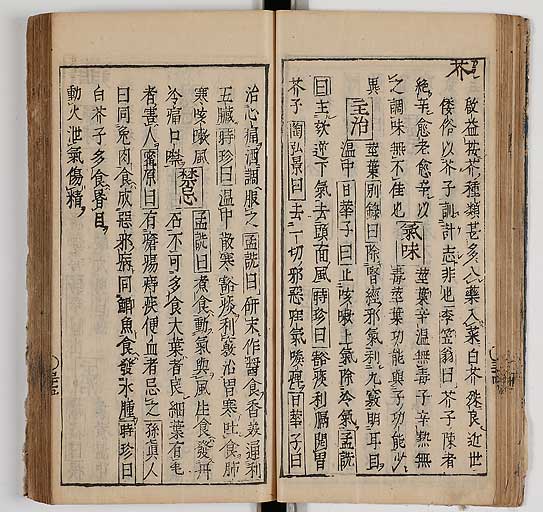 芥
啟益按芥種類甚多入藥入菜白芥殊良近世
倭俗以芥子訓計志非也李笠翁曰芥子陳者
絶辛愈老愈辛以氣味莖葉辛温無毒子辛熱無
之調味無不佳也毒莖葉功能與子功能少
異主治莖葉別錄曰除腎經邪氣利九竅明耳目
温中日華子曰止咳嗽上氣除冷氣孟詵
曰主欬逆下氣去頭面風時珍曰豁痰利膈悶胃
芥子陶弘景曰去一切邪惡疰氣喉痺日華子曰
治心痛酒調服之孟詵曰研末作醬食香美通利
五臟時珍曰温中散寒豁痰利竅治胃寒吐食肺
寒咳嗽風禁忌孟詵曰煮食動氣與風生食發丹
冷痛口噤石不可多食大葉者良細葉有毛
者害人甯原曰有瘡瘍痔疾便血者忌之孫真人
曰同兔肉食成惡邪病同鯽魚食發水腫時珍曰
白芥子多食昏目
動火泄氣傷精